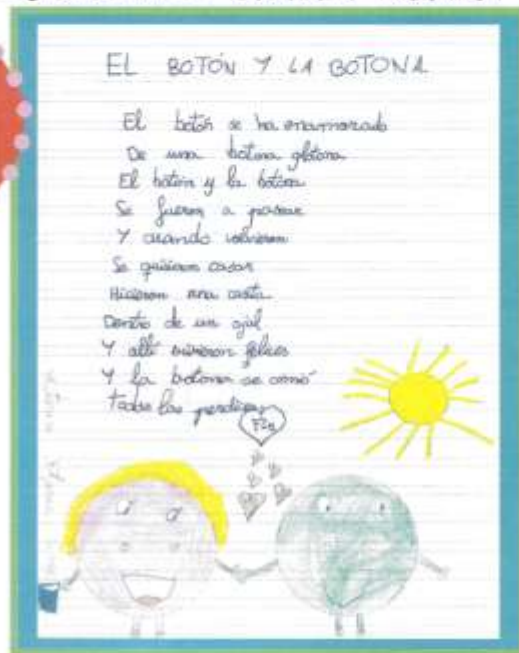 EL BOTÓN Y LA BOTONA
El botón se ha enamorado
De una botona glotona
El botón y la botona
Se fueron a pasear
Y cuando volvieron
Se quisieron casar
Hicieron una casita
Dentro de un ojal
Y allí vivieron felices
Y la botona se comió
todas las perdices
Fin